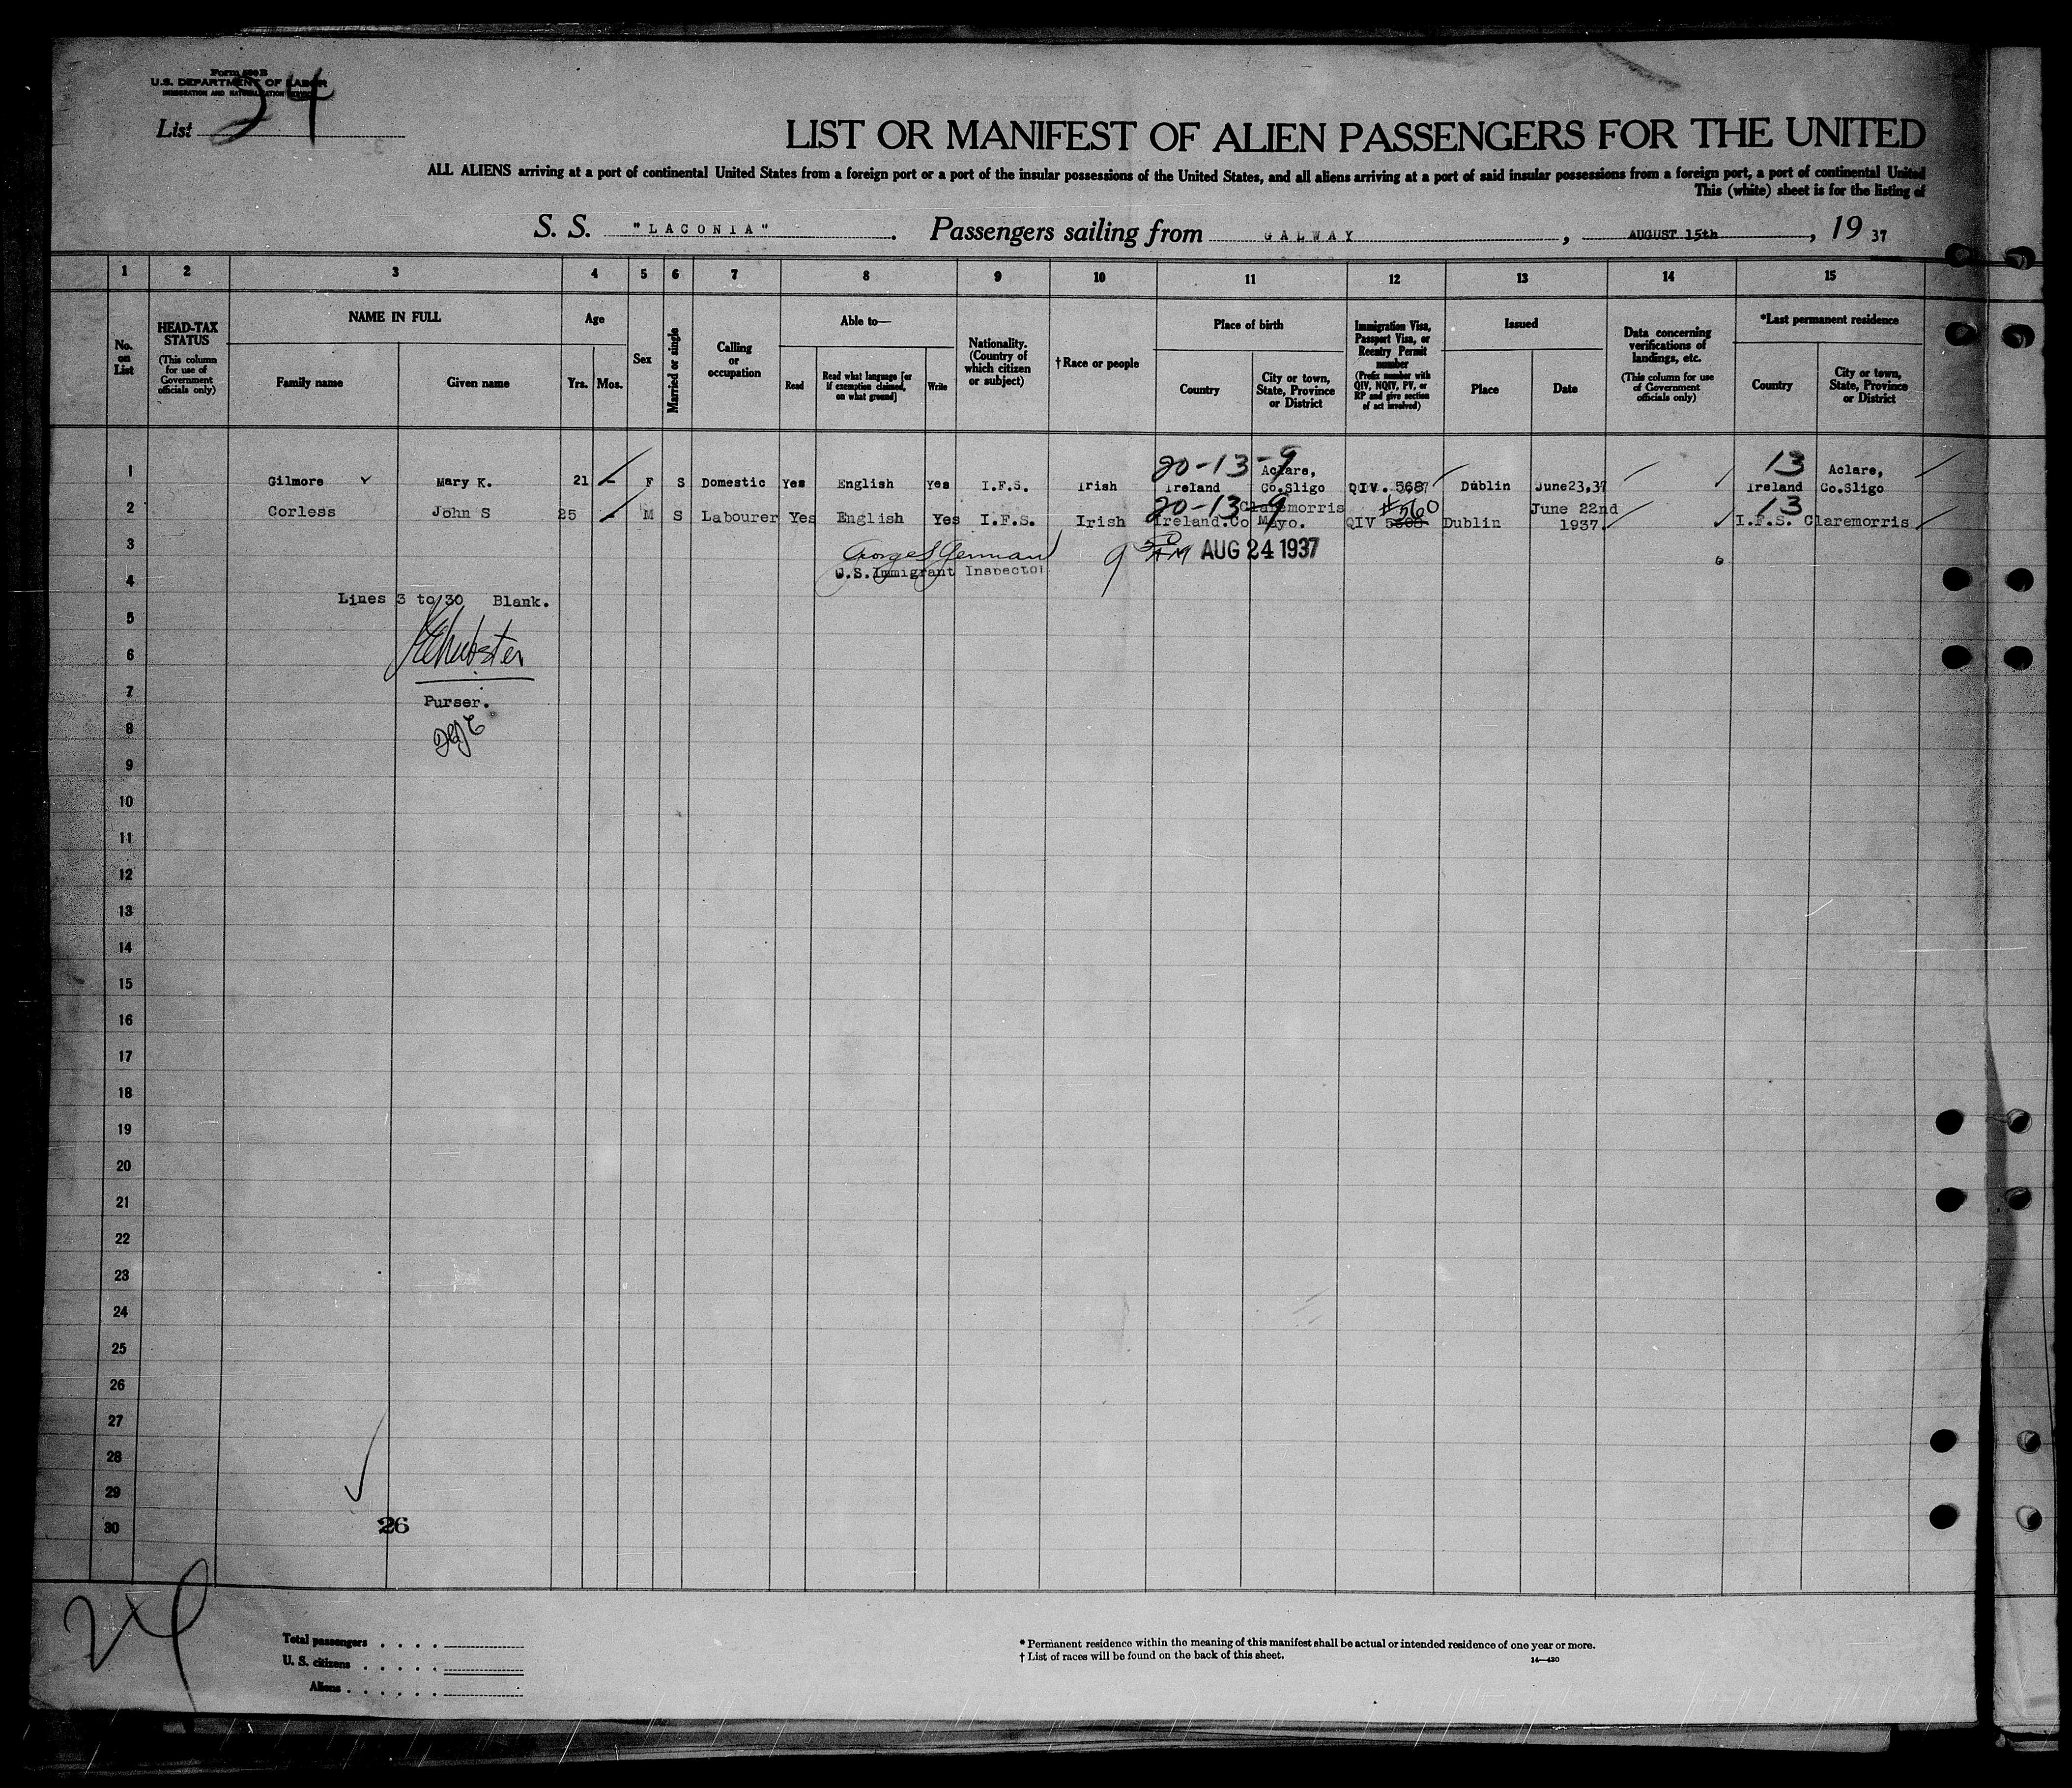 Form 500 B
U.S. DEPARTMENT OF LABOR
IMMIGRATION AND NATURALIZATION SERVICE
List 24
LIST OR MANIFEST OF ALIEN PASSENGERS FOR THE UNITED
ALL ALIENS arriving at a port of continental United States from a foreign port or a port of the insular possessions of the United States, and all aliens arriving at a port of said insular possessions from a foreign port, a port of continental United
This (white) sheet is for the listing of
S. S. "LACONIA". Passengers sailing from GALWAY, AUGUST 15th, 19 37
1 2 3 4 5 6 7 8 9 10 11 12 13 14 15
No. on List
HEAD-TAX STATUS (This column for use of Government officials only)
NAME IN FULL
Family name
Given name
Age
Yrs.
Mos.
Sex
Married or single
Calling or occupation
Able to—
Read
Read what language [or if exemption claimed, on what ground]
Write
Nationality. (Country of which citizen or subject)
†Race or people
Place of birth
Country
City or town, State, Province or District
Immigration Visa, Passport Visa, or Reentry Permit number (Prefix number with QIV, NQIV, PV, or RP and give section of act involved)
Issued
Place
Date
Data concerning verifications of landings, etc. (This column for use of Government officials only)
*Last permanent residence
Country
City or town, State, Province or District
20-13-9 13
1 Gilmore Mary K. 21 F S Domestic Yes English Yes I.F.S. Irish Ireland Aclare, Co.Sligo QIV. 568 Dublin June23,37 Ireland Aclare, Co.Sligo
20-13-9 #560 13
2 Corless John S 25 M S Labourer Yes English Yes I.F.S. Irish Ireland.Co Mayo. Claremorris QIV 5608 Dublin June 22nd 1937. I.F.S. Claremorris
3 9 30 AM AUG 24 1937
4 U.S.Immigrant Inspector
Lines 3 to 30 Blank.
5
6
7 Purser.
8
9
10
11
12
13
14
15
16
17
18
19
20
21
22
23
24
25
26
27
28
29
30 26
24
Total passengers
U. S. citizens
Aliens
* Permanent residence within the meaning of this manifest shall be actual or intended residence of one year or more.
† List of races will be found on the back of this sheet.
14—430